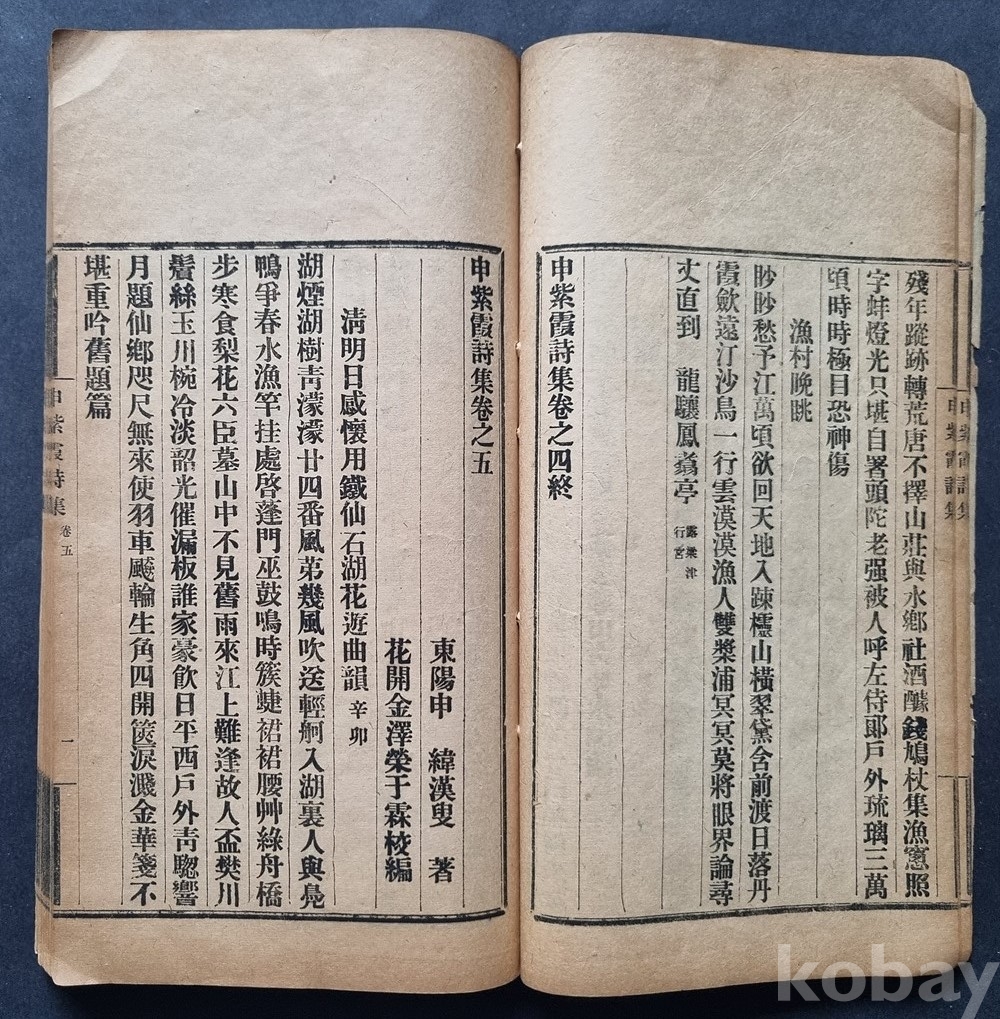 殘年蹤跡轉荒唐不擇山莊與水鄕社酒醵錢鳩杖集漁窻照
字蚌燈光只堪自署頭陀老强被人呼左侍郞戶外琉璃三萬
頃時時極目恐神傷
漁村晩眺
眇眇愁予江萬頃欲回天地入踈欞山橫翠黛含前渡日落丹
霞斂遠汀沙鳥一行雲漠漠漁人雙槳浦冥冥莫將眼界論尋
丈直到 龍驤鳳翥亭 露梁津
行宮
申紫霞詩集卷之四終
申紫霞詩集
申紫霞詩集卷之五
東陽申 緯漢叟 著
花開金澤榮于霖校編
淸明日感懷用鐵仙石湖花遊曲韻 辛卯
湖煙湖樹靑濛濛廿四番風第幾風吹送輕舸入湖裏人與鳧
鴨爭春水漁竿挂處啓蓬門巫鼓鳴時簇蜨裙裙腰艸綠舟橋
步寒食梨花六臣墓山中不見舊雨來江上難逢故人盃樊川
鬢絲玉川椀冷淡韶光催漏板誰家豪飮日平西戶外靑驄響
月題仙鄕咫尺無來使羽車飈輪生角四開篋淚濺金華箋不
堪重吟舊題篇
申紫霞詩集 卷五 一
kobay